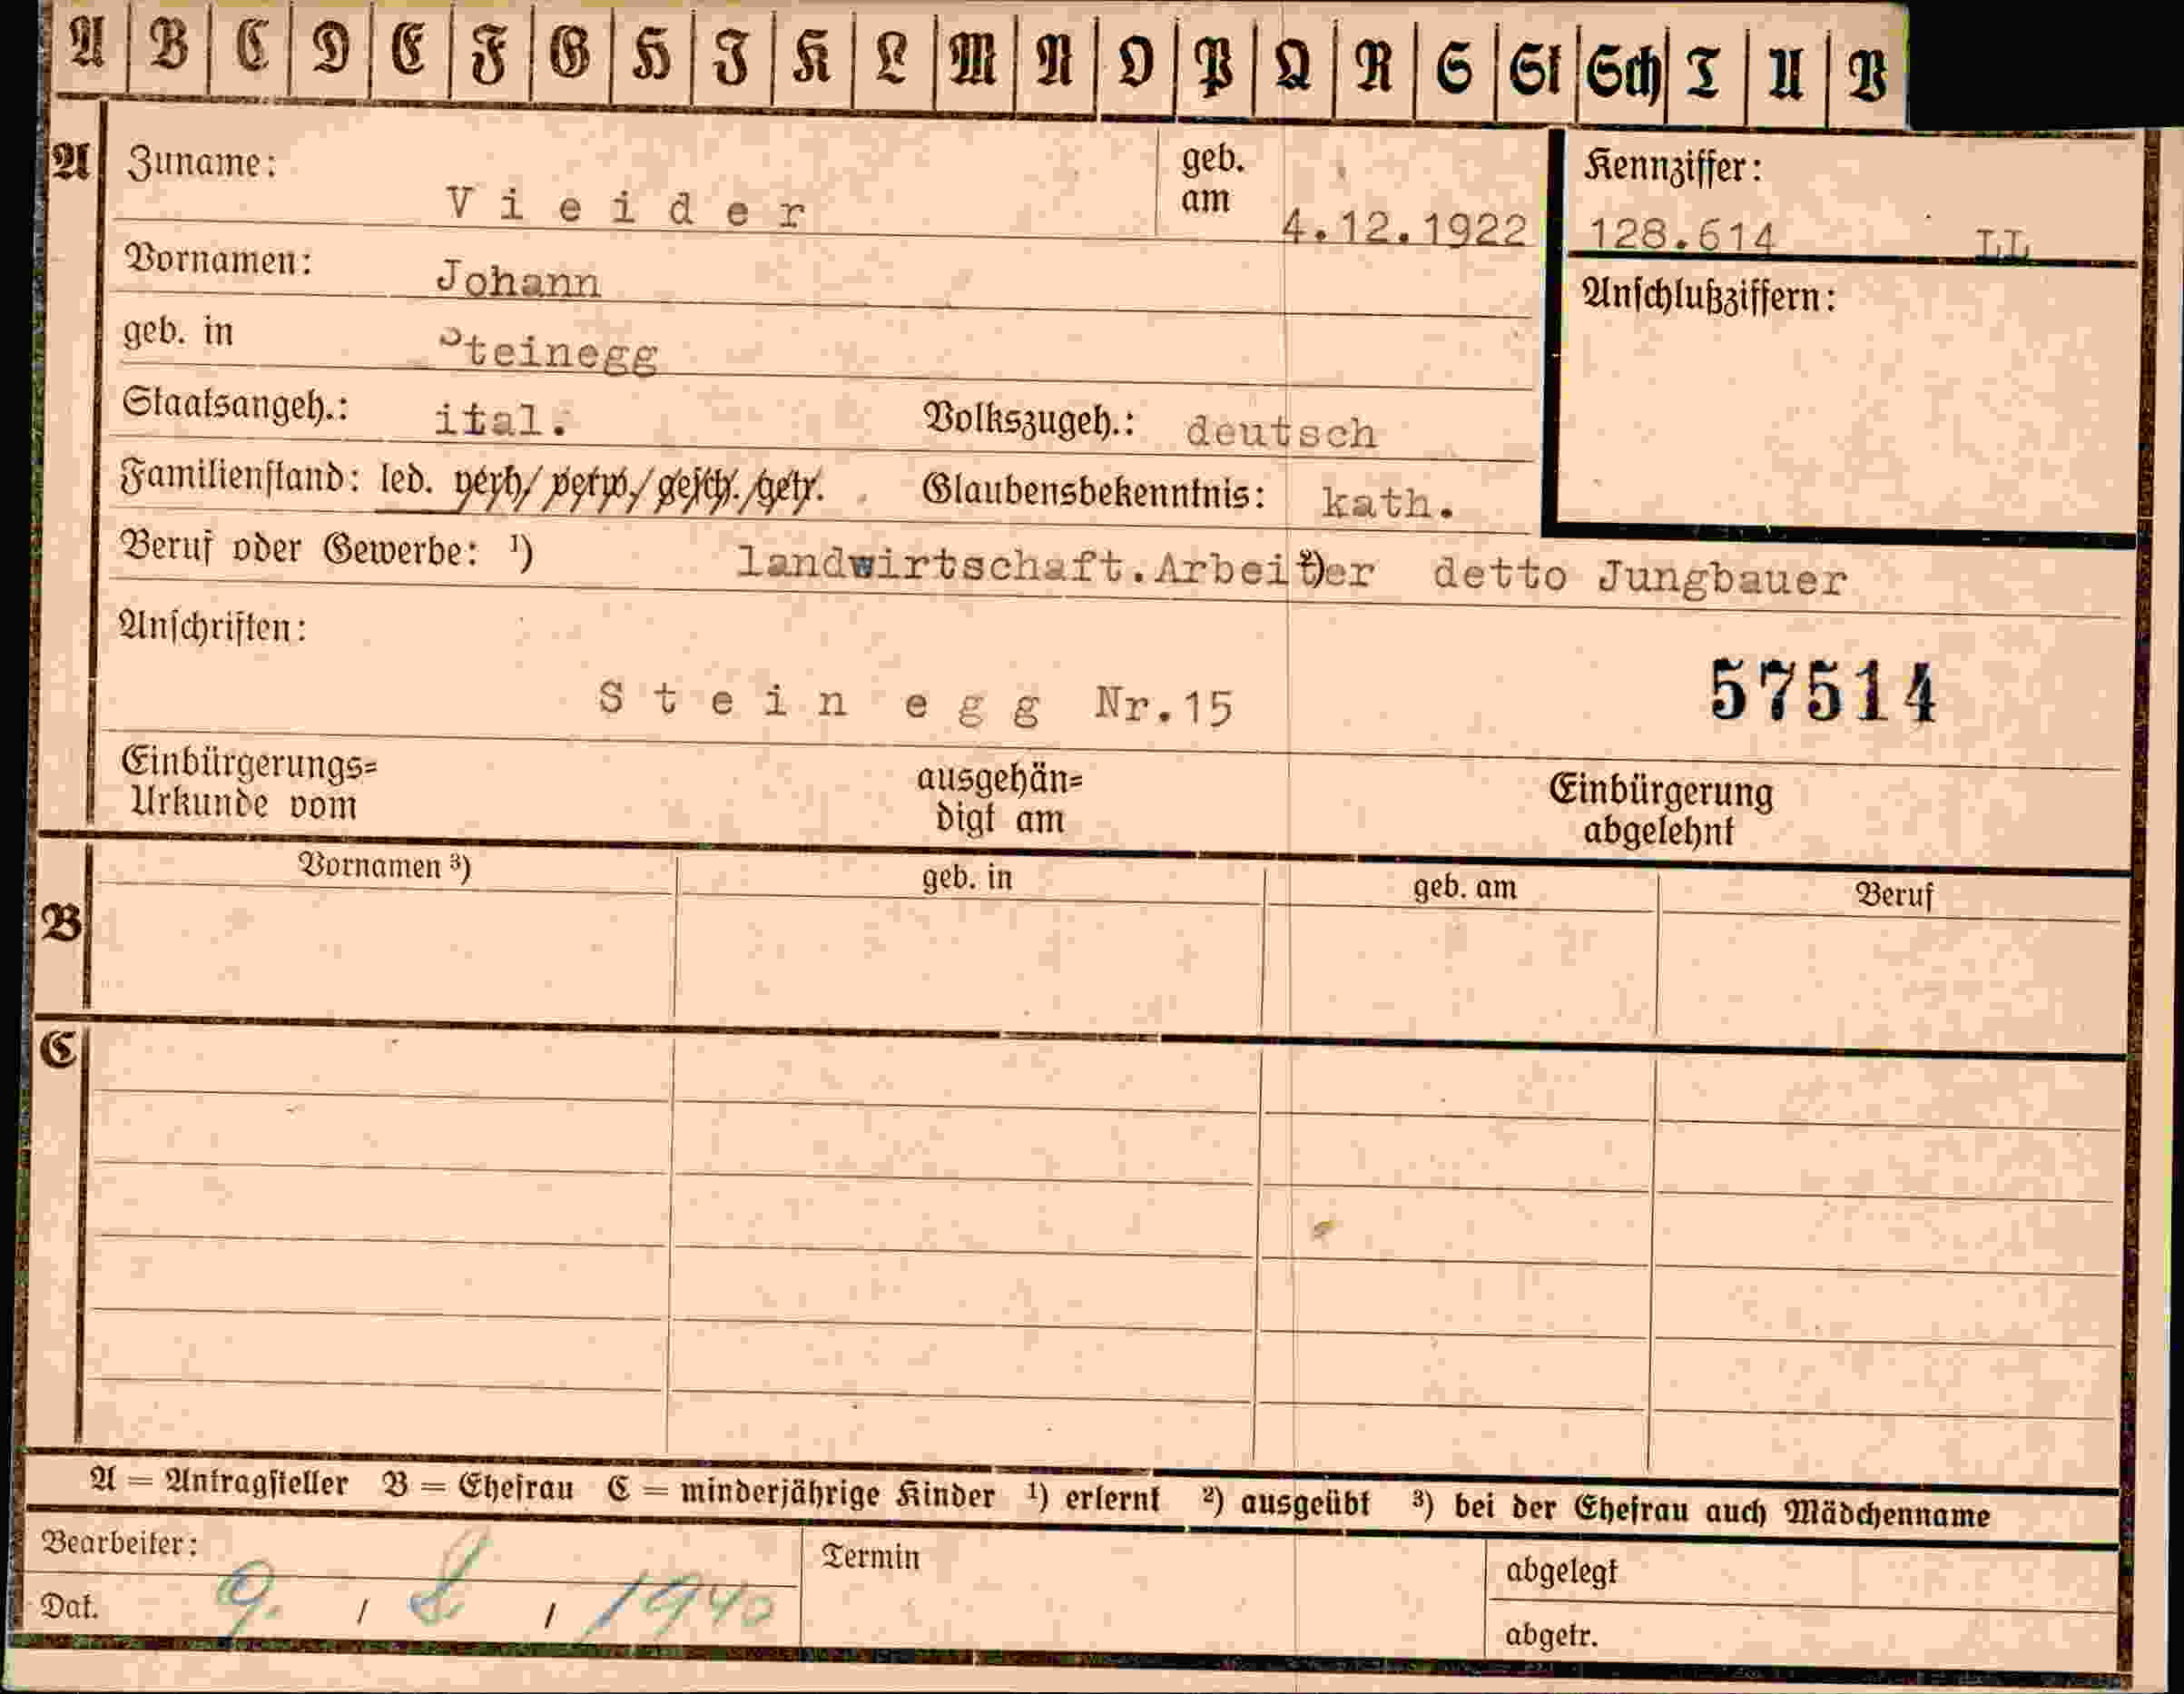 A B C D E F G H I K L M N O P Q R S St Sch T U V
A Zuname: Vieider geb. am 4.12.1922 Kennziffer: 128.614 LL
Vornamen: Johann Anschlußziffern:
geb. in Steinegg
Staatsangeh.: ital. Volkszugeh.: deutsch
Familienstand: led. verh/ verw./ gesch./getr. Glaubensbekenntnis: kath.
Beruf oder Gewerbe: ¹) landwirtschaft.Arbeiter ²) detto Jungbauer
Anschriften:
Stein egg Nr.15 57514
Einbürgerungs= ausgehän= Einbürgerung
Urkunde vom digt am abgelehnt
B Vornamen ³) geb. in geb. am Beruf
C
A = Antragsteller B = Ehefrau C = minderjährige Kinder ¹) erlernt ²) ausgeübt ³) bei der Ehefrau auch Mädchenname
Bearbeiter: Termin abgelegt
Dat. 9. / / 1940 abgetr.